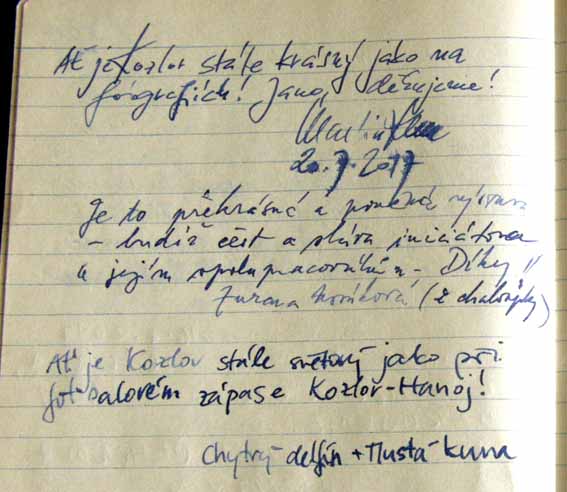 Ať je Kozlov stále krásný jako na
fotografiích! Jano, děkujeme!
Martin
20.7.2017
Je to překrásná a poučná výstava
– budiž čest a sláva iniciátorce
a jejím spolupracovníkům – Díky!!
Zuzana Nováková (z chaloupky)
Ať je Kozlov stále světový jako při
fotbalovém zápase Kozlov-Hanoj!
Chytrý delfín + Tlustá kuna